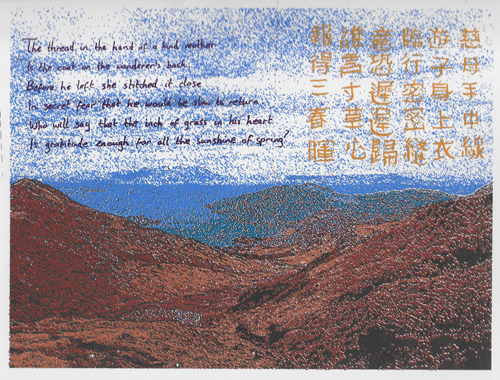 The thread in the hand of a kind mother
Is the coat on the wanderer's back.
Before he left she stitched it close
In secret fear that he would be slow to return.
Who will say that the inch of grass in his heart
Is gratitude enough for all the sunshine of spring?
慈母手中線
遊子身上衣
臨行密密縫
意恐遲遲歸
誰言寸草心
報得三春暉